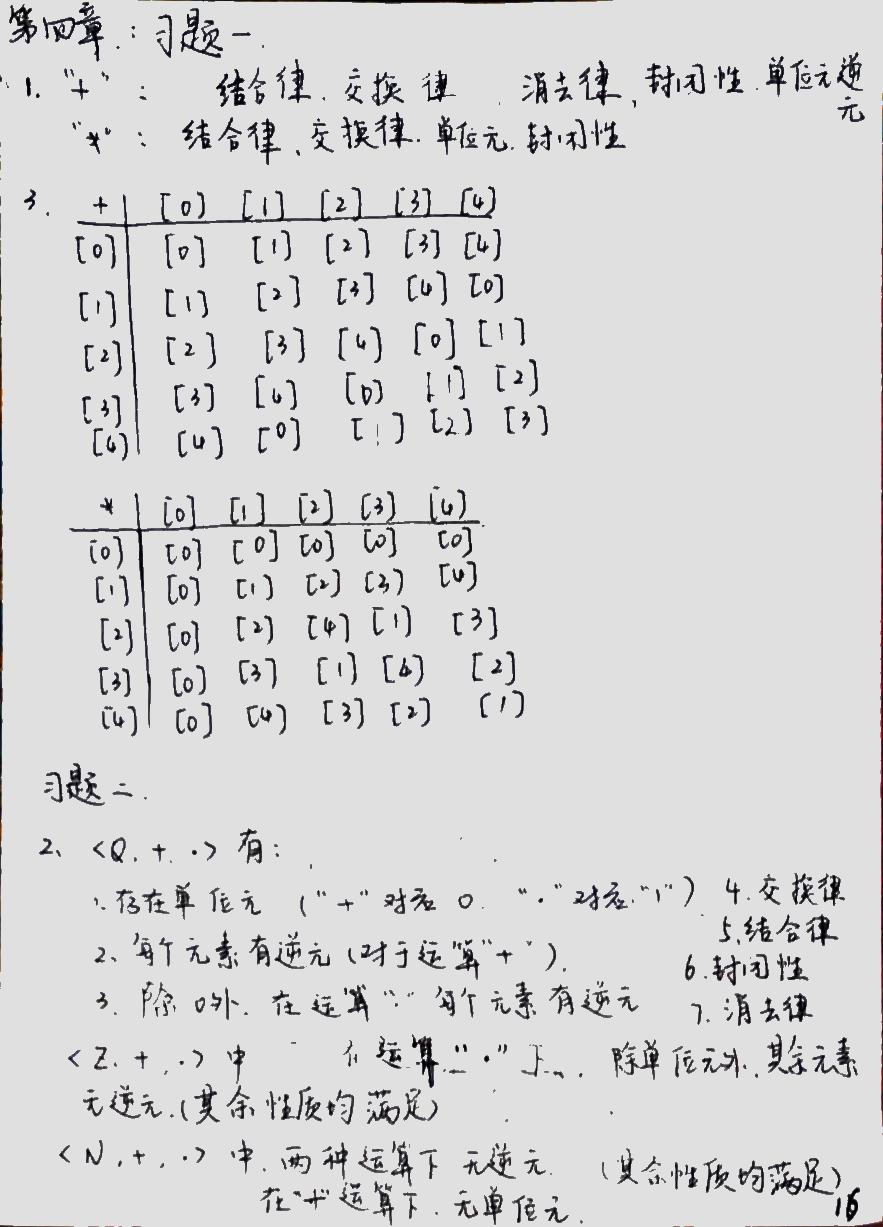 第四章：习题一.
1. "+"： 结合律、交换律、消去律、封闭性、单位元逆元
"*"：结合律、交换律、单位元、封闭性
3. + [0] [1] [2] [3] [4]
[0] [0] [1] [2] [3] [4]
[1] [1] [2] [3] [4] [0]
[2] [2] [3] [4] [0] [1]
[3] [3] [4] [0] [1] [2]
[4] [4] [0] [1] [2] [3]
* [0] [1] [2] [3] [4]
[0] [0] [0] [0] [0] [0]
[1] [0] [1] [2] [3] [4]
[2] [0] [2] [4] [1] [3]
[3] [0] [3] [1] [4] [2]
[4] [0] [4] [3] [2] [1]
习题二.
2、<Q, +, ·> 有：
1.存在单位元 ("+"对应 0. "·"对应"1") 4.交换律
5.结合律
2、每个元素有逆元(对于运算"+"). 6.封闭性
3. 除0外. 在运算"·" 每个元素有逆元 7.消去律
<Z, +, ·> 中 在运算"·"下, 除单位元外, 其余元素
无逆元.(其余性质均满足)
<N, +, ·> 中, 两种运算下无逆元. (其余性质均满足)
在"+"运算下. 无单位元.
16